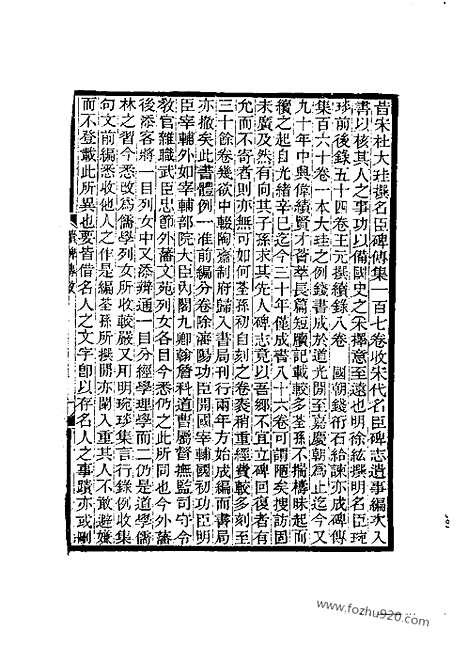 昔宋杜大珪撰名臣碑傳集一百七卷收宋代名臣碑志遺事編次入
書以核其人之事功以備國史之采擇意至遠也明徐紘撰明名臣琬
琰前後錄五十四卷王元撰續錄八卷　國朝錢衎石給諫亦成碑傳
集百六十卷一本大珪之例錢書成於道光閒至嘉慶朝為止迄今又
九十年中興偉績賢才萃長篇短牘記載較多荃孫不揣檮昧起而
續之起自光緒辛巳迄今三十年僅成書八十六卷可謂陋矣搜訪固
未廣及然有向其子孫求其先人碑志竟以吾鄉不宜立碑回復者有
允而不寄者則亦無可如何荃孫初自刻之卷袠稍重經費較多刻至
三十餘卷幾欲中輟陶齋制府歸入書局刊行兩年方始成編而書局
亦撤矣此書體例一准前編分卷除瀋陽功臣開國宰輔國初功臣明
臣宰輔外如宰輔部院大臣內閣九卿翰詹科道曹屬督撫監司守令
敎官雜職武臣忠節外藩文苑列女各目今悉仍之此所同也今外藩
後添客將一目列女中又添辨通一目分經學理學而二仍是道學儒
林之習今悉改為儒學列女所收較嚴又用明琬琰集言行錄例收集
句文前編悉收他人之作是編荃孫所撰閒亦闌入重其人不敢避嫌
而不登載此所異也要皆借名人之文字卽以存名人之事蹟亦或刪
www.fozhu920.com